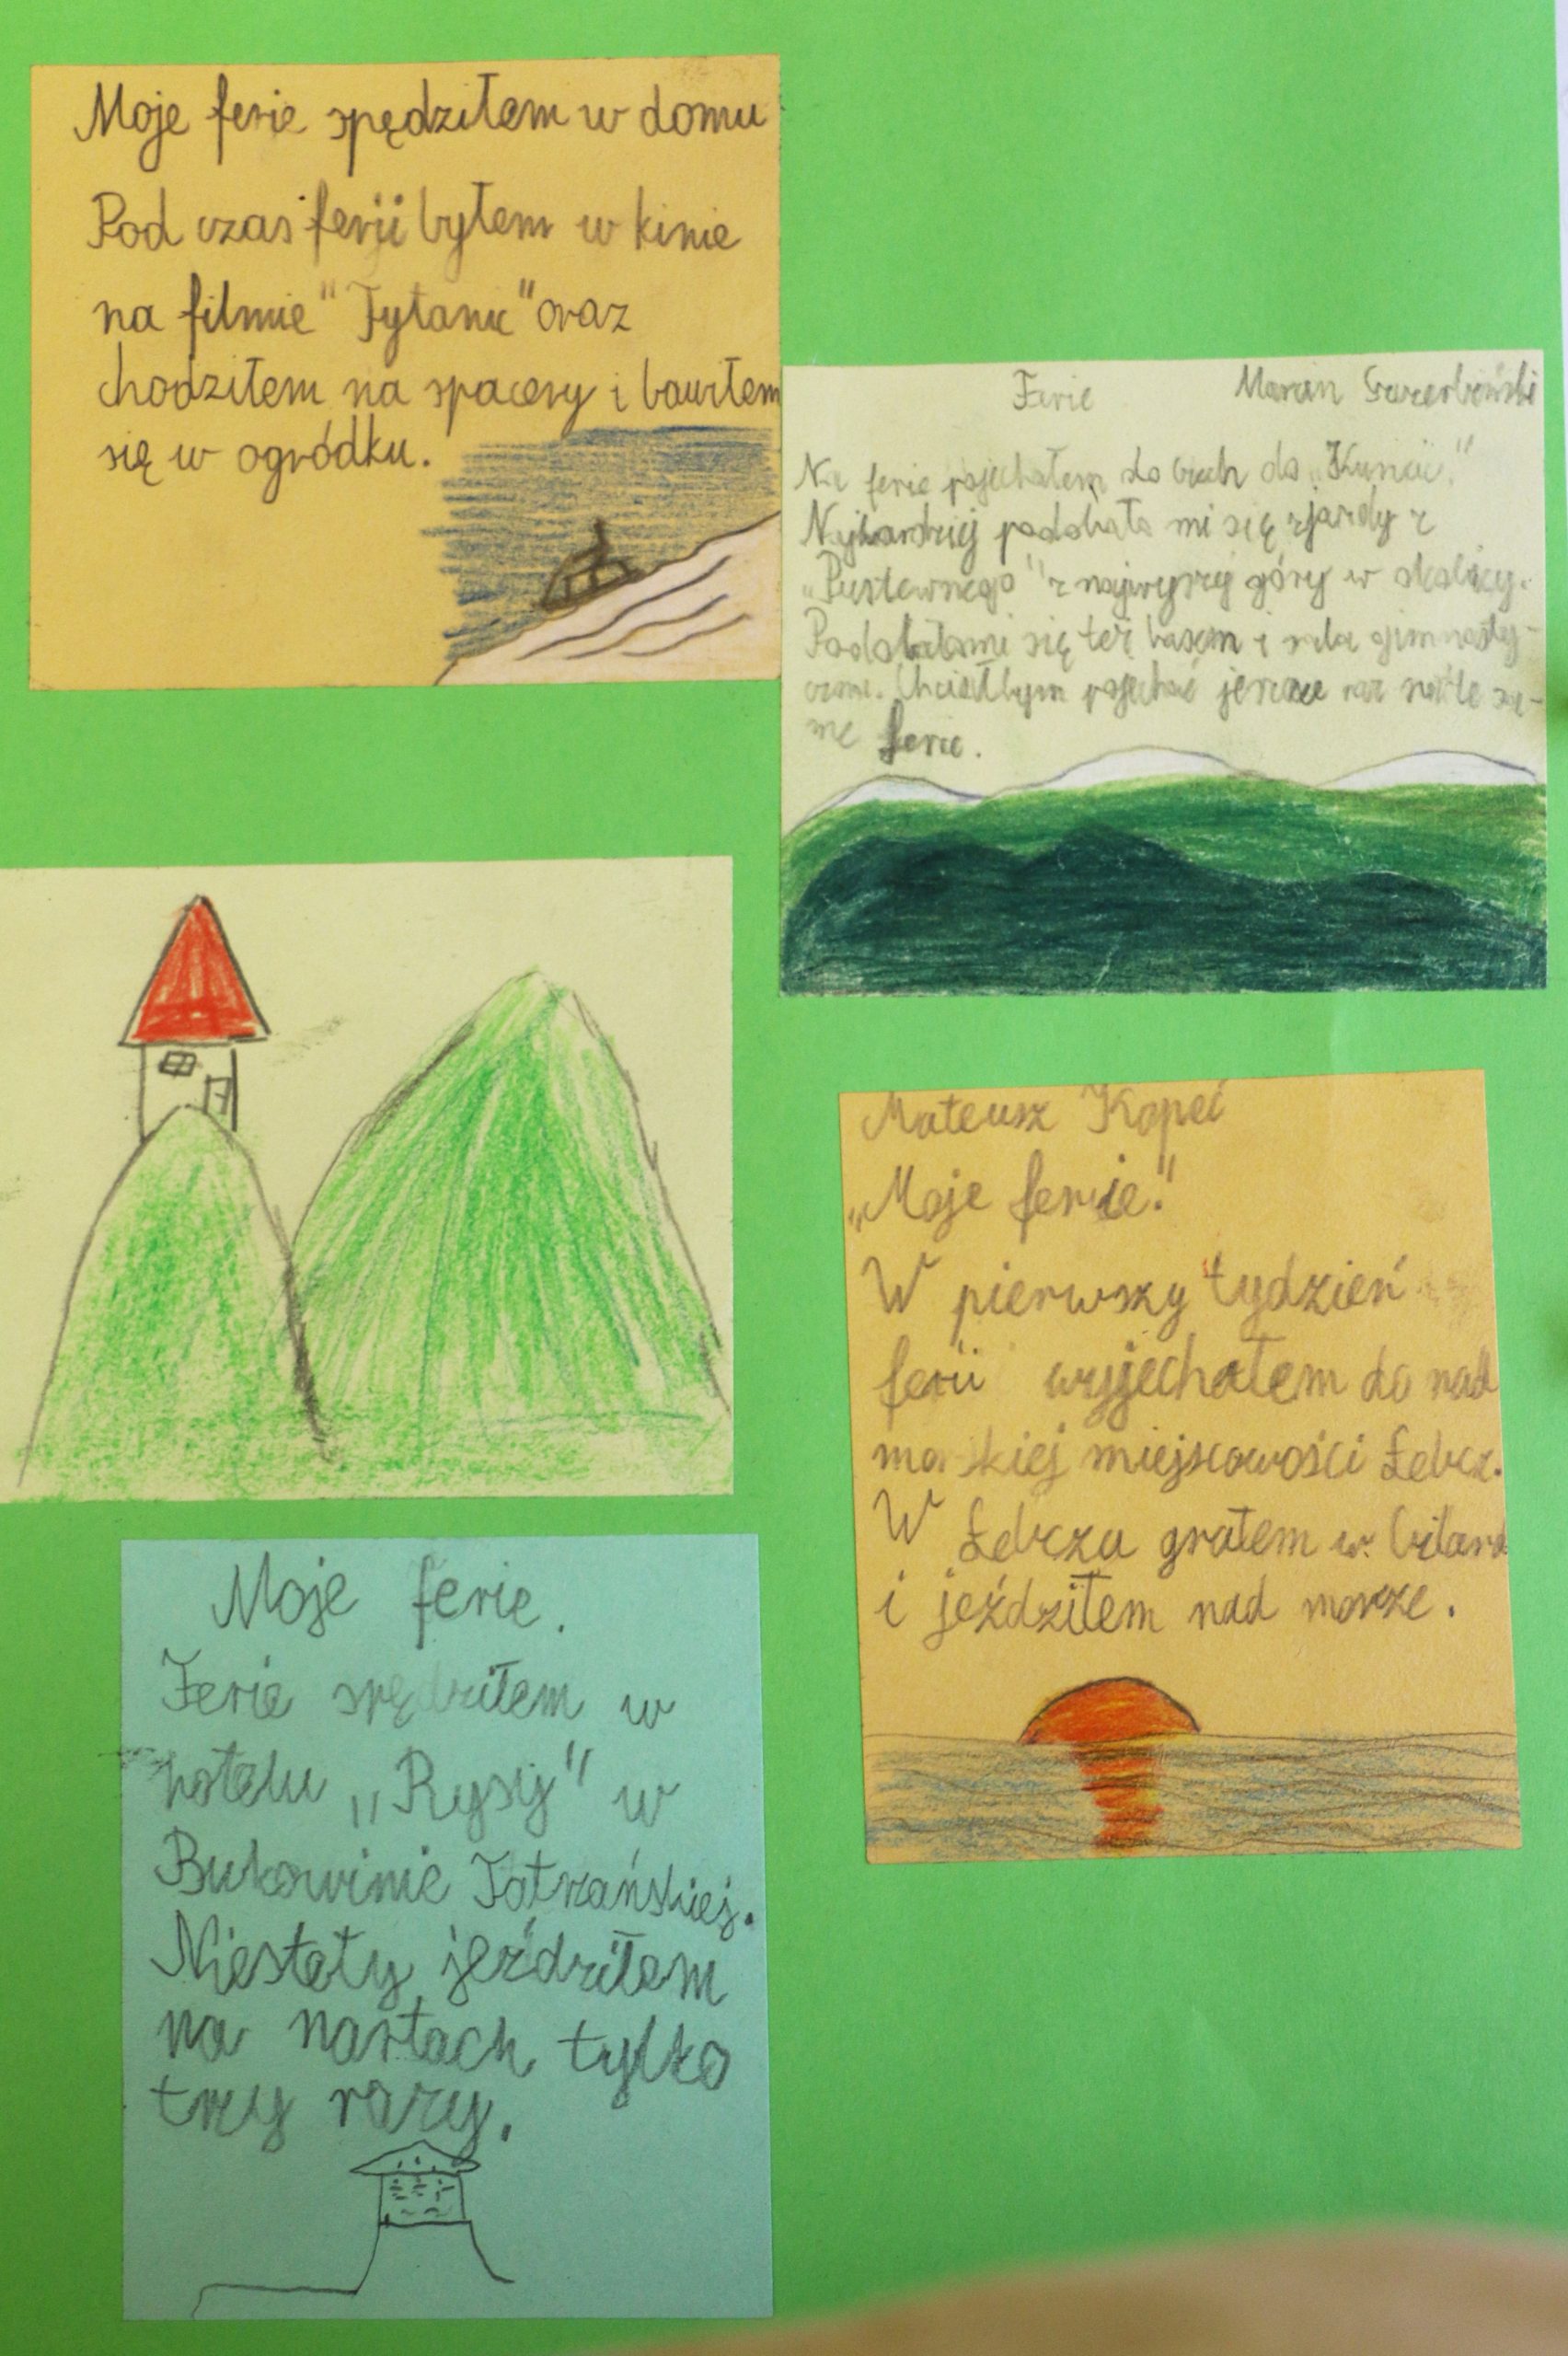 Moje ferie spędziłem w domu
Pod czas ferii byłem w kinie
na filmie "Tytanic" oraz
chodziłem na spacery i bawiłem
się w ogródku.
Ferie Marcin
Na ferie pojechałem do do
Najbardziej podobało mi się zjazdy z
„Pustewnego" z najwyszej góry w okolicy.
Podobało mi się też basen i sala gimnasty-
czna. Chciałbym pojechać jeszcze raz na te sa-
me ferie.
Mateusz Kopeć
„Moje ferie."
W pierwszy tydzień
ferii wyjechałem do nad
morskiej miejscowości Łebcz.
W Łebczu grałem w bilard
i jeździłem nad morze.
Moje ferie.
Ferie spędziłem w
hotelu „Rysy" w
Bukowinie Tatrzańskiej.
Niestety jeździłem
na nartach tylko
trzy razy.